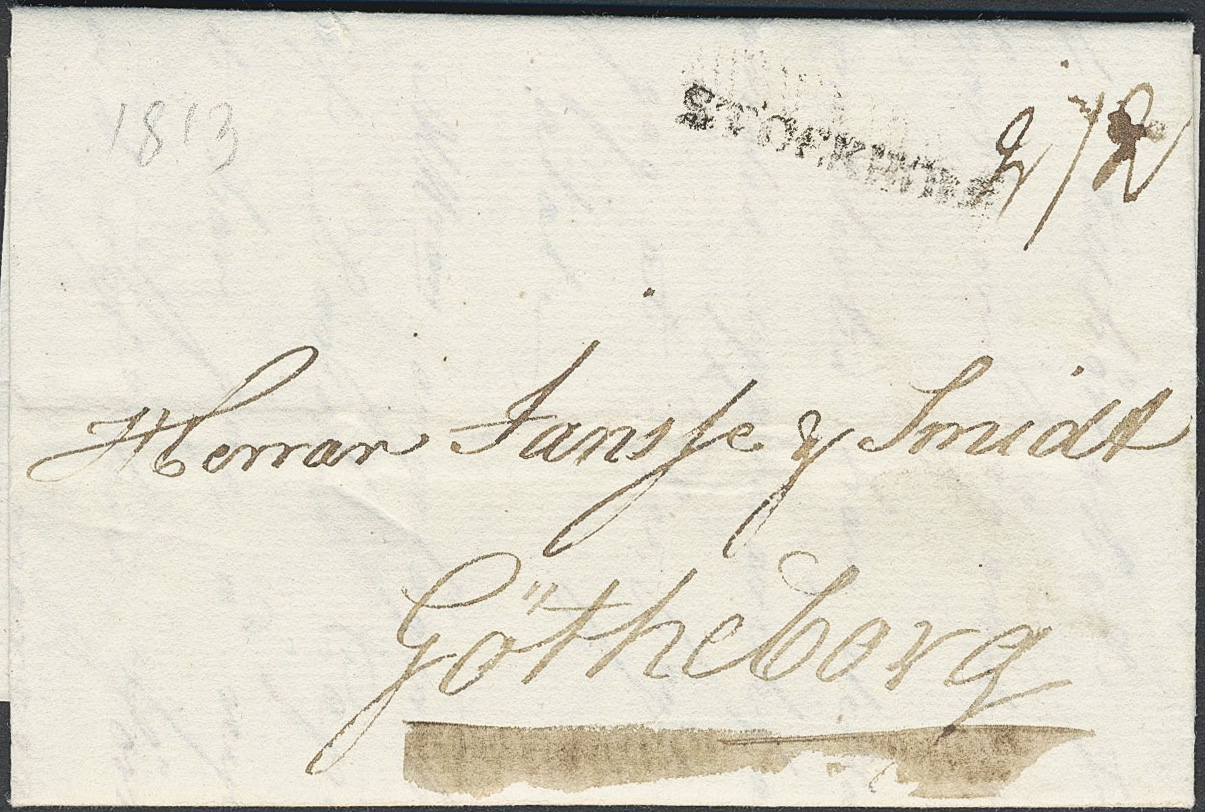 1813
STOCKHOLM
Herrar Jansse & Smidt
Götheborg